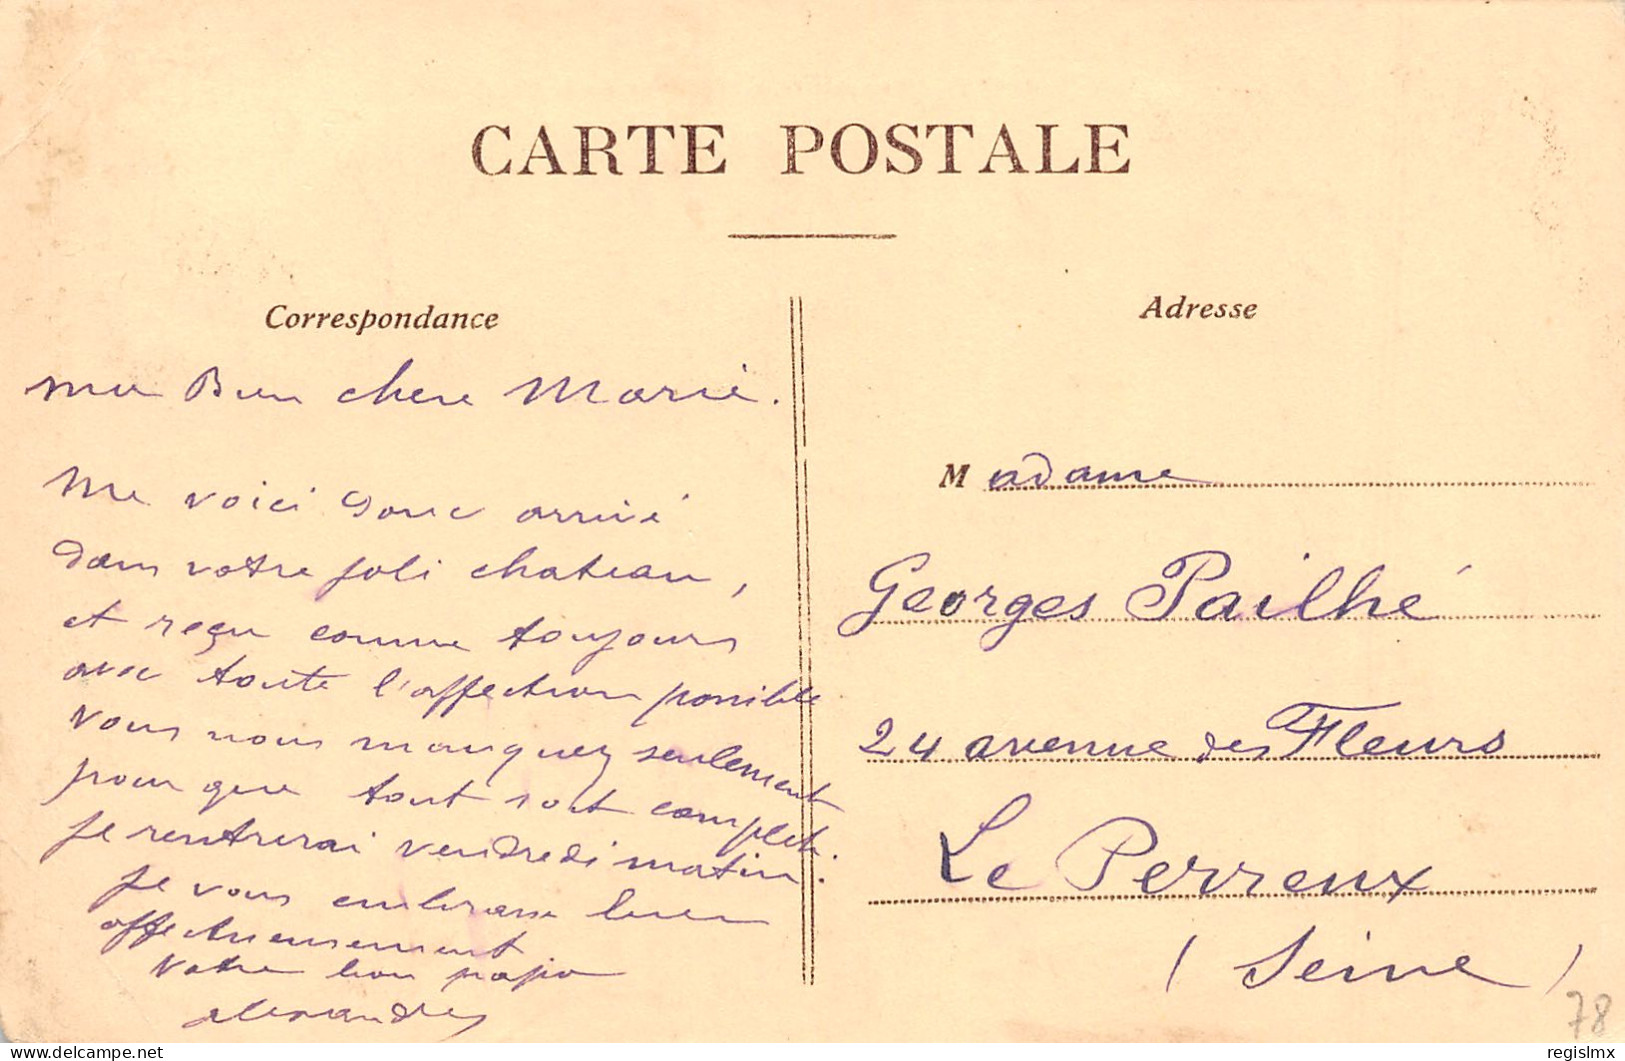 CARTE POSTALE
Correspondance
ma Bien chere Marie.
Me voici donc arrivé
dans votre joli chateau,
et reçu comme toujours
avec toute l'affection possible
vous nous manquez seulement
pour que tout soit complet.
je rentrerai vendredi matin.
je vous embrasse bien
affectueusement
Votre bon papa
alexandre
Adresse
Madame
Georges Pailhé
24 avenue des Fleurs
Le Perreux
(Seine)
78
regislmx